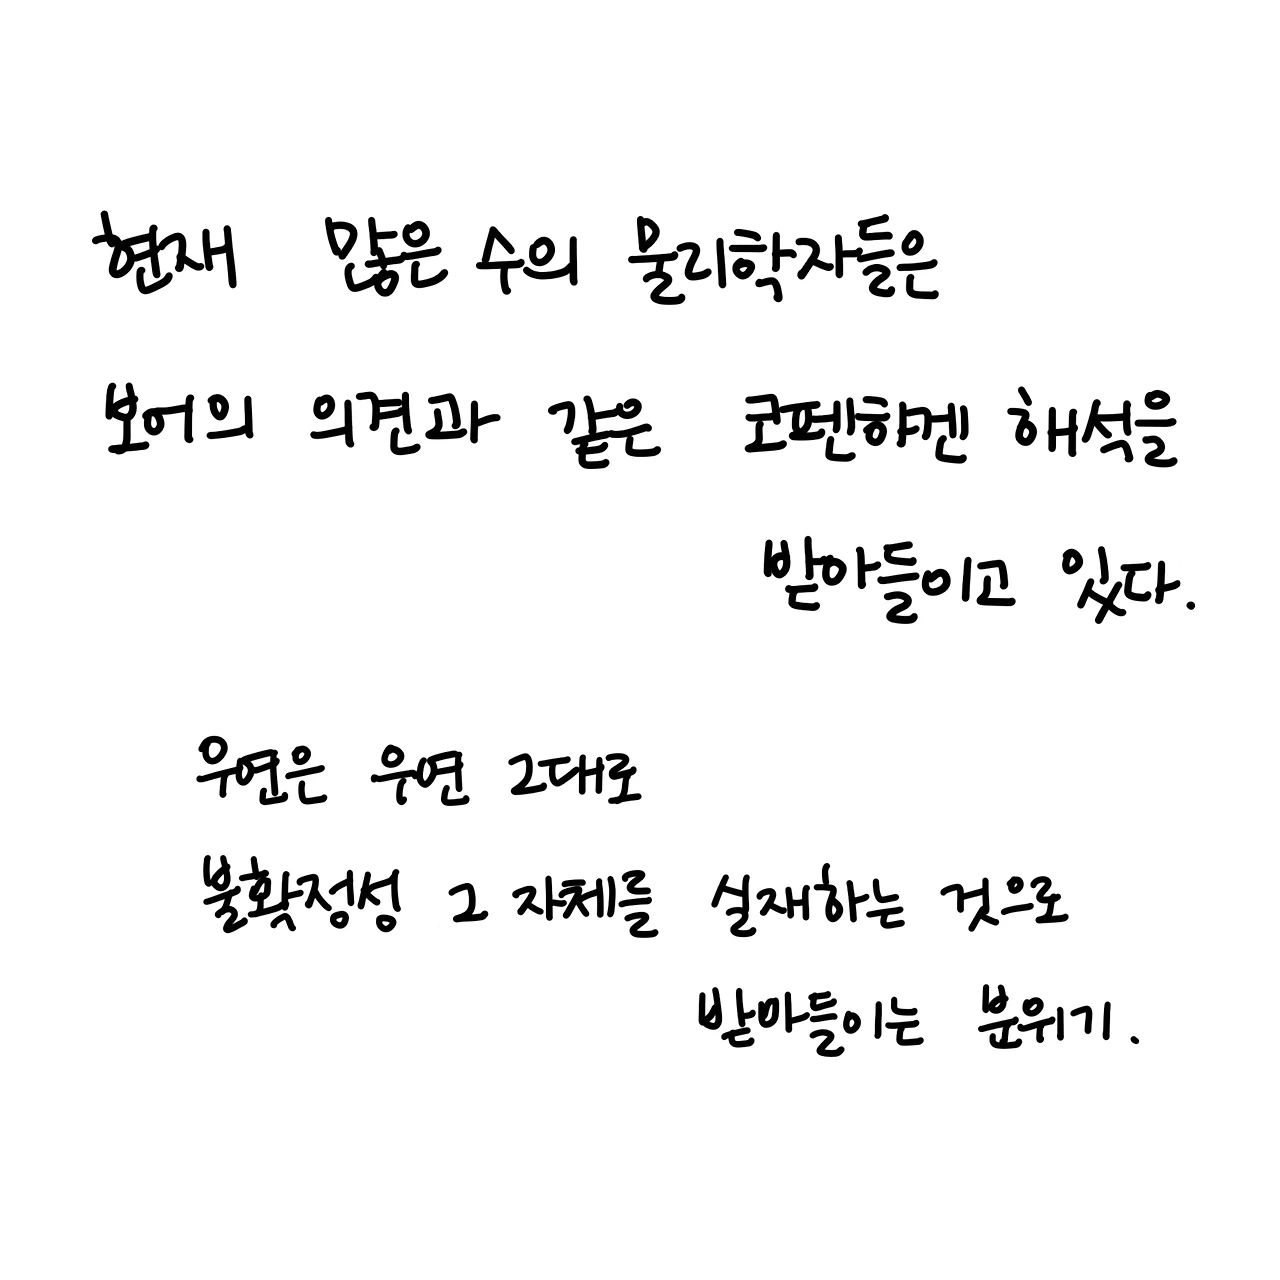 현재 많은 수의 물리학자들은
보어의 의견과 같은 코펜햐겐 해석을
받아들이고 있다.
우연은 우연 그대로
불확정성 그 자체를 실재하는 것으로
받아들이는 분위기.